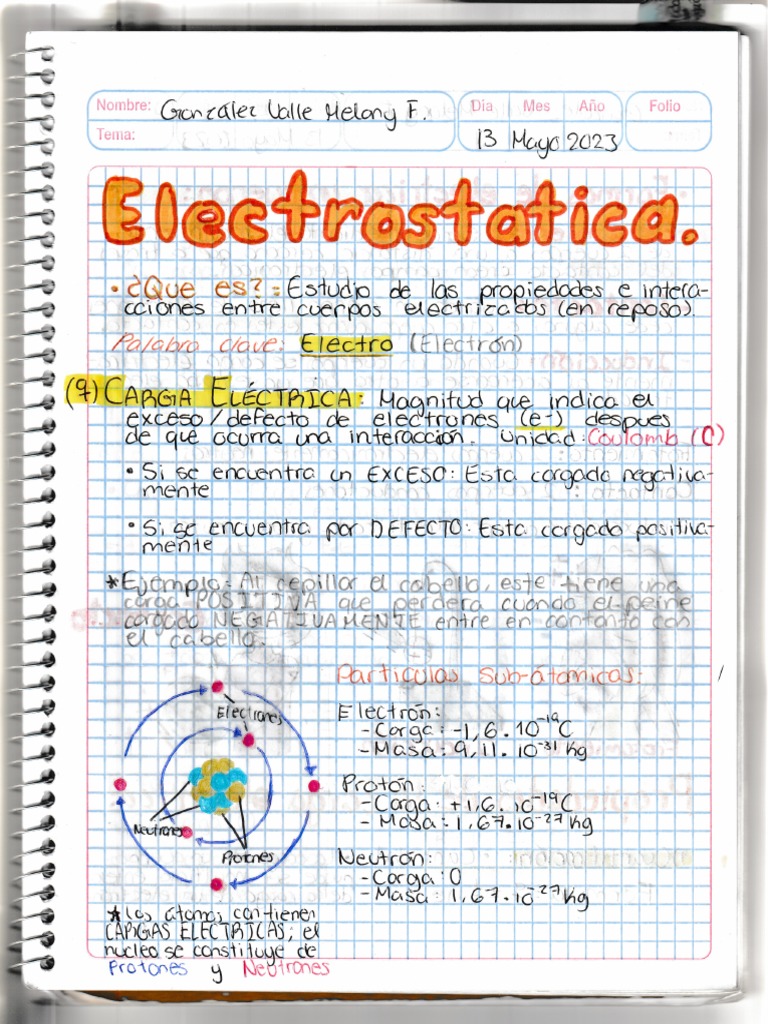 Nombre: González Valle Melany F. Día Mes Año Folio
Tema: 13 Mayo 2023
Electrostatica.
• ¿Que es?: Estudio de las propiedades e intera-
cciones entre cuerpos electrizados (en reposo).
Palabra clave: Electro (Electrón)
(q) CARGA ELÉCTRICA: Magnitud que indica el
exceso/defecto de electrones (e-) despues
de que ocurra una interacción. Unidad: Coulomb (C)
• Si se encuentra un EXCESO: Esta cargado negativa-
mente
• Si se encuentra por DEFECTO: Esta cargado positiva-
mente
*Ejemplo: Al cepillar el cabello, este tiene una
carga POSITIVA que perdera cuando el peine
cargado NEGATIVAMENTE entre en contanto con
el cabello.
Particulas Sub-átomicas:
Electrón:
-Carga: -1,6.10⁻¹⁹C
-Masa: 9,11.10⁻³¹kg
Protón:
-Carga: +1,6.10⁻¹⁹C
-Masa: 1,67.10⁻²⁷kg
Neutrón:
-Carga: 0
-Masa: 1,67.10⁻²⁷kg
Electrones
Neutrones
Protones
*Los átomos contienen
CARGAS ELECTRICAS; el
nucleo se constituye de
Protones y Neutrones